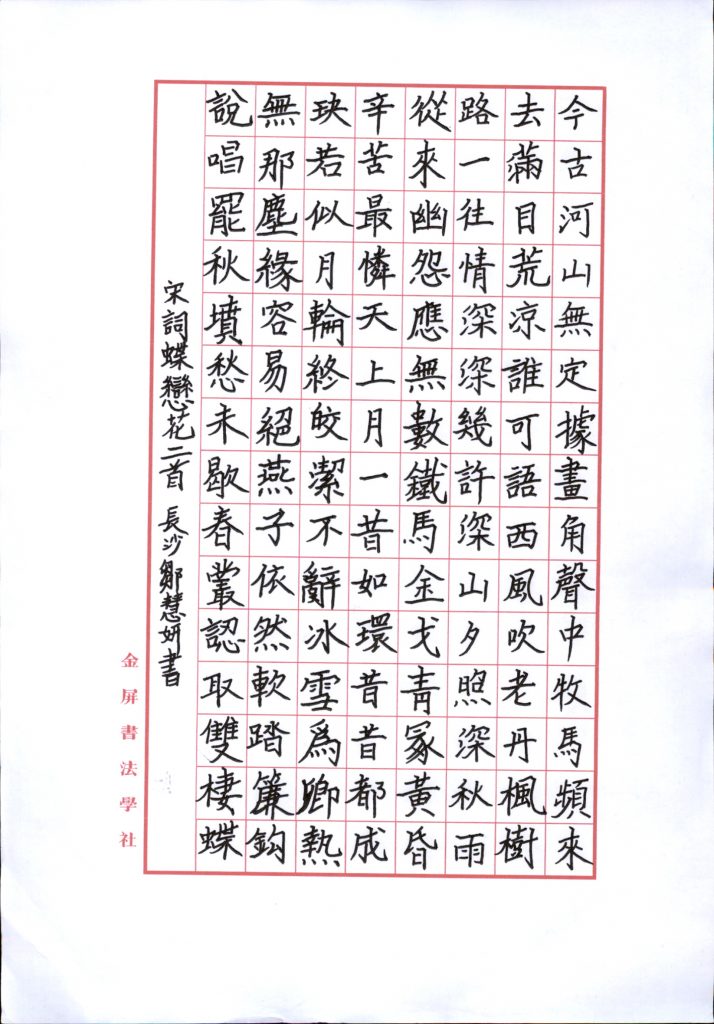 今古河山無定據畫角聲中牧馬頻來
去滿目荒涼誰可語西風吹老丹楓樹
路一往情深深幾許深山夕照深秋雨
從來幽怨應無數鐵馬金戈青冢黃昏
辛苦最憐天上月一昔如環昔昔都成
玦若似月輪終皎潔不辭冰雪爲卿熱
無那塵緣容易絕燕子依然軟踏簾鈎
說唱罷秋墳愁未歇春叢認取雙棲蝶
宋詞蝶戀花二首 長沙鄒慧妍書
金屏書法學社